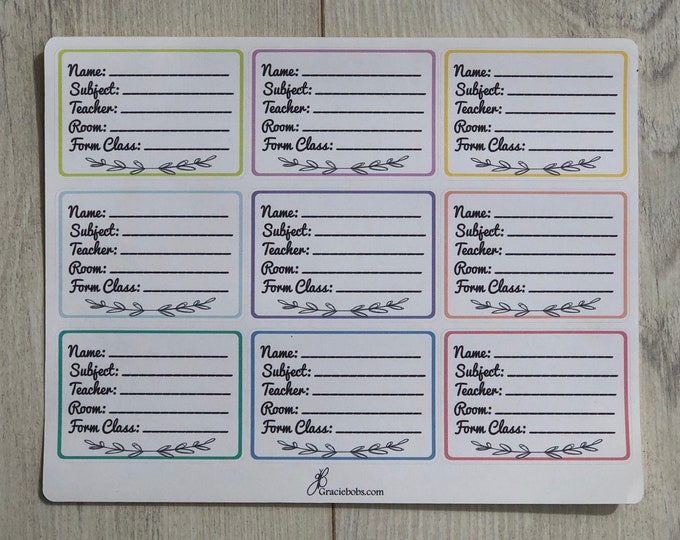 Name: ____________
Subject: ____________
Teacher: ____________
Room: ____________
Form Class: ____________
Name: ____________
Subject: ____________
Teacher: ____________
Room: ____________
Form Class: ____________
Name: ____________
Subject: ____________
Teacher: ____________
Room: ____________
Form Class: ____________
Name: ____________
Subject: ____________
Teacher: ____________
Room: ____________
Form Class: ____________
Name: ____________
Subject: ____________
Teacher: ____________
Room: ____________
Form Class: ____________
Name: ____________
Subject: ____________
Teacher: ____________
Room: ____________
Form Class: ____________
Name: ____________
Subject: ____________
Teacher: ____________
Room: ____________
Form Class: ____________
Name: ____________
Subject: ____________
Teacher: ____________
Room: ____________
Form Class: ____________
Name: ____________
Subject: ____________
Teacher: ____________
Room: ____________
Form Class: ____________
Graciebobs.com